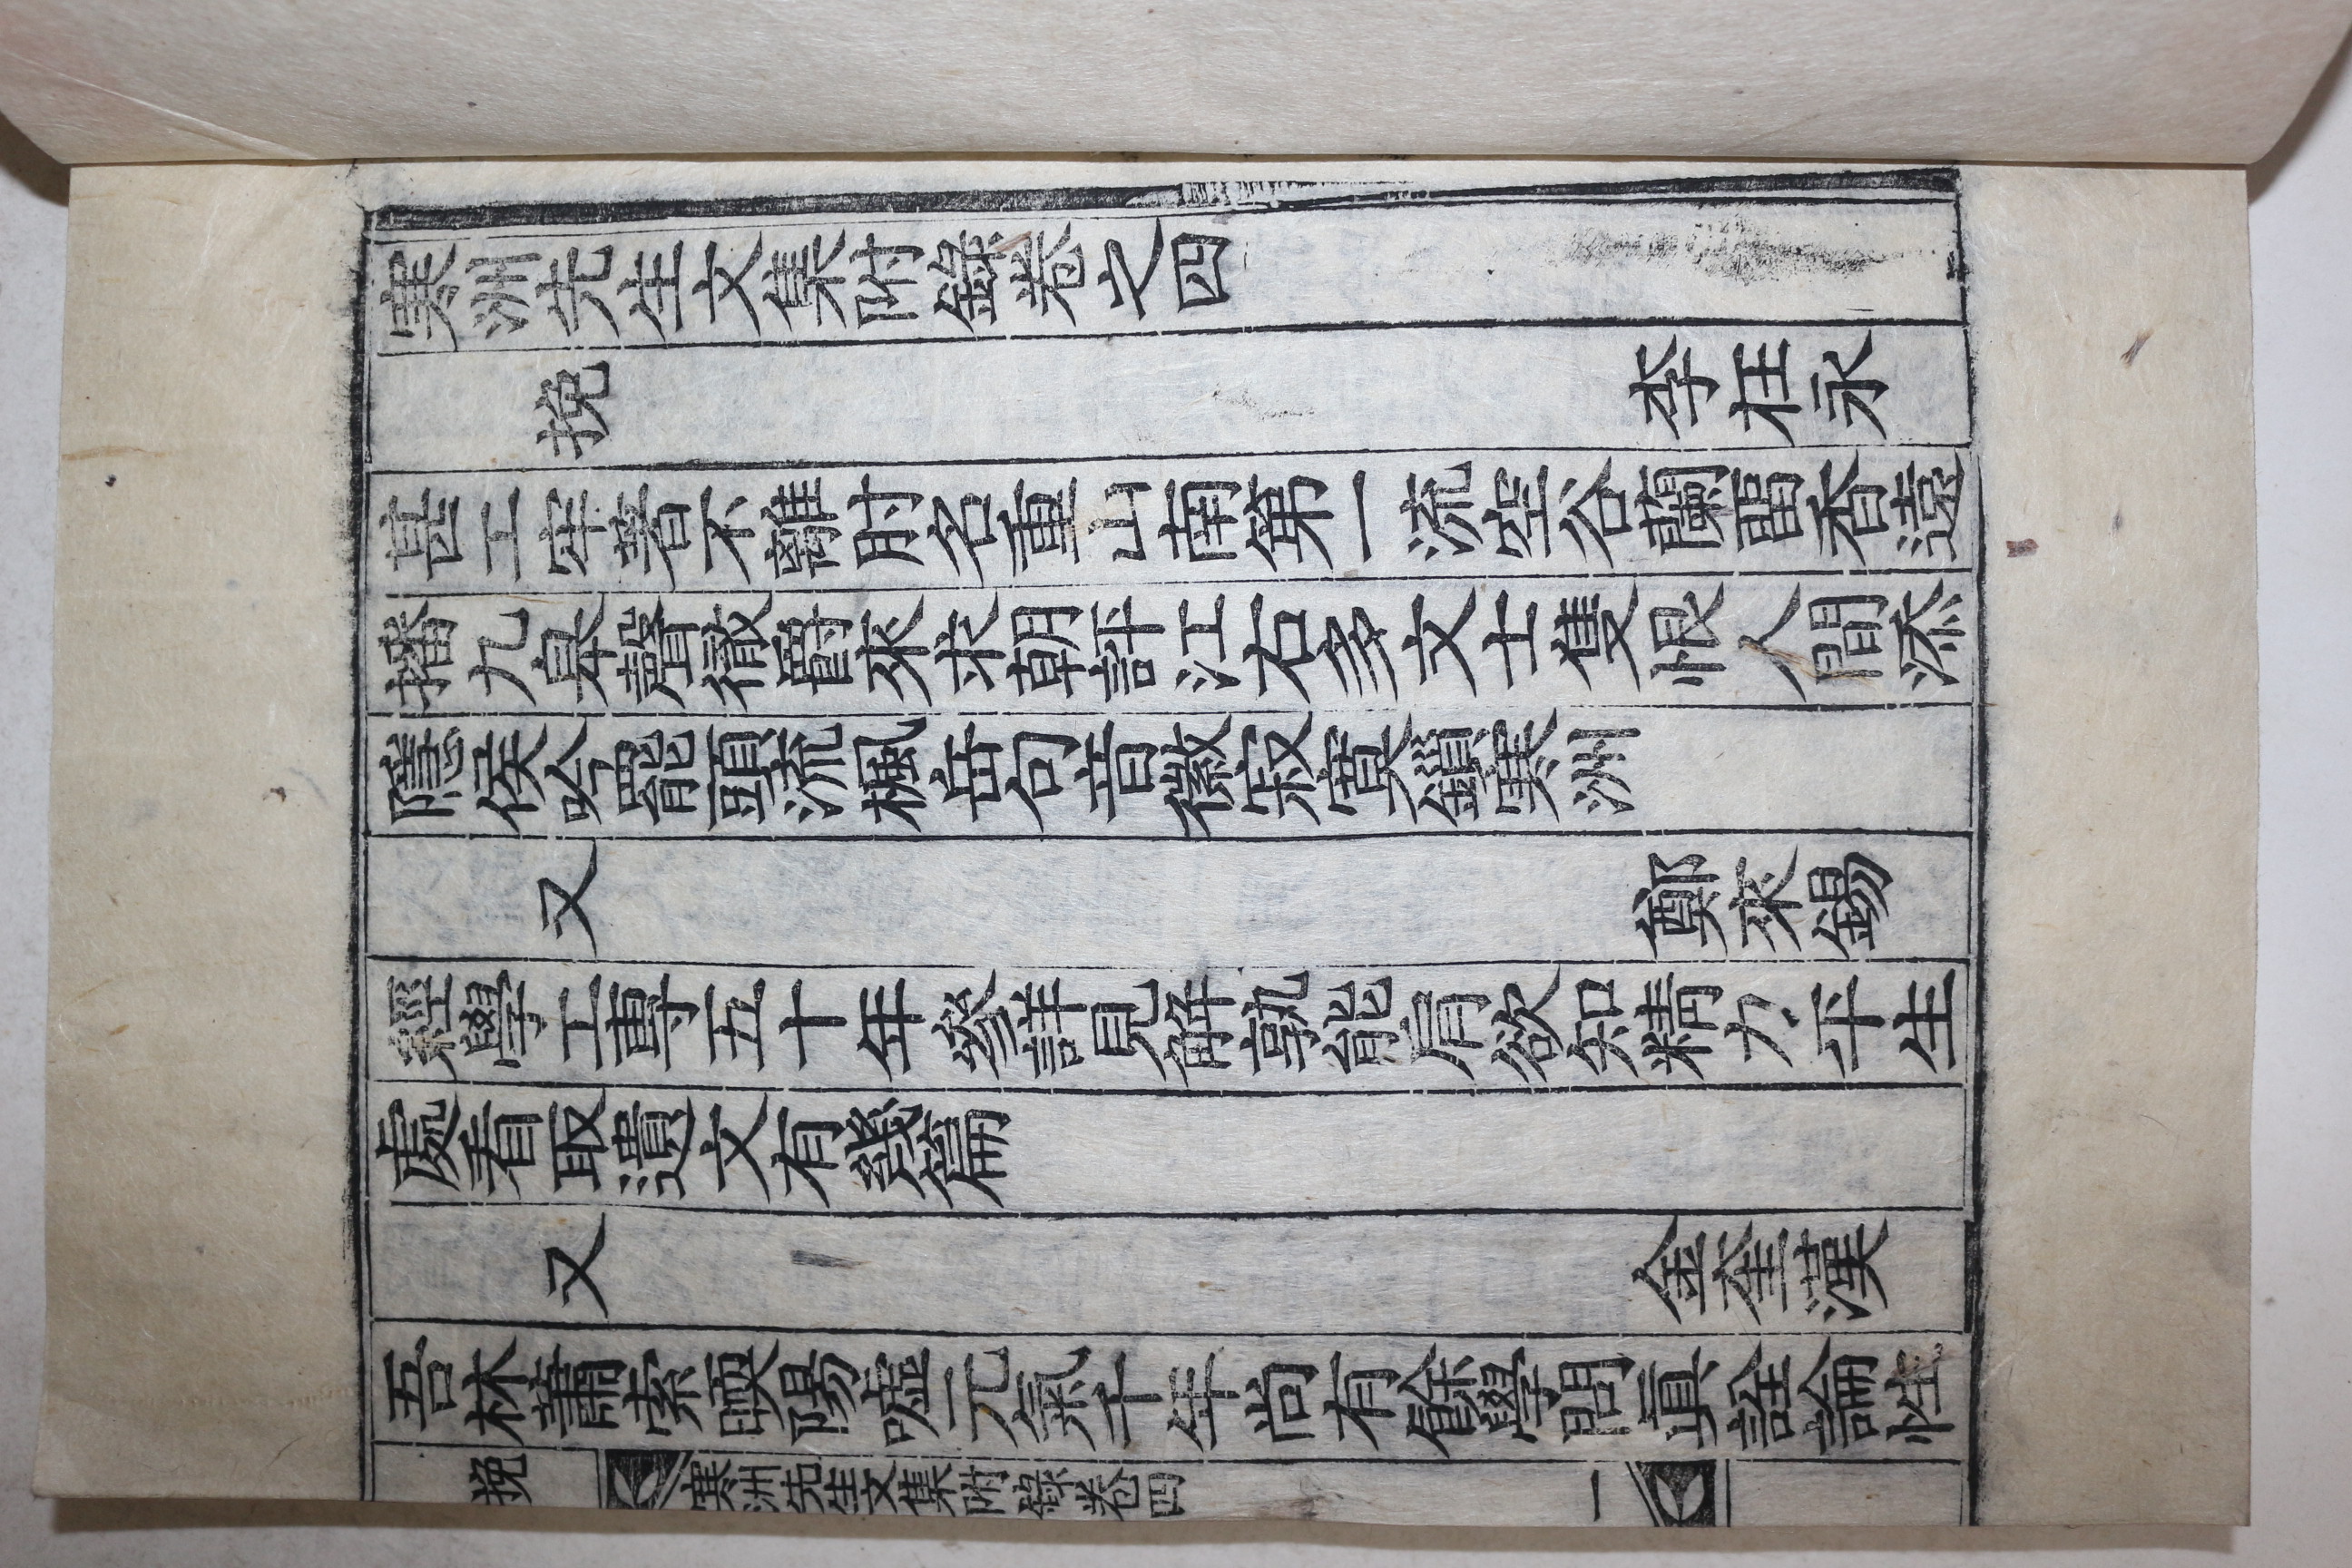 寒洲先生文集附錄卷之四
挽 李在永
甚工牢著不離肘名重山南第一流空谷蘭留香遠
播九皐聲徹爵來求朝評江右多文士隻恨人間添
隱侯吟罷頭流楓岳句音徽寂寞鎖寒洲
又 鄭來錫
經學工專五十年參詳見解孰能肩欲知精力平生
處看取遺文有幾篇
又 金奎漢
吾林蕭索㬉陽嘘元氣千年尚有餘學問眞詮論性
挽 寒洲先生文集附錄卷四 一